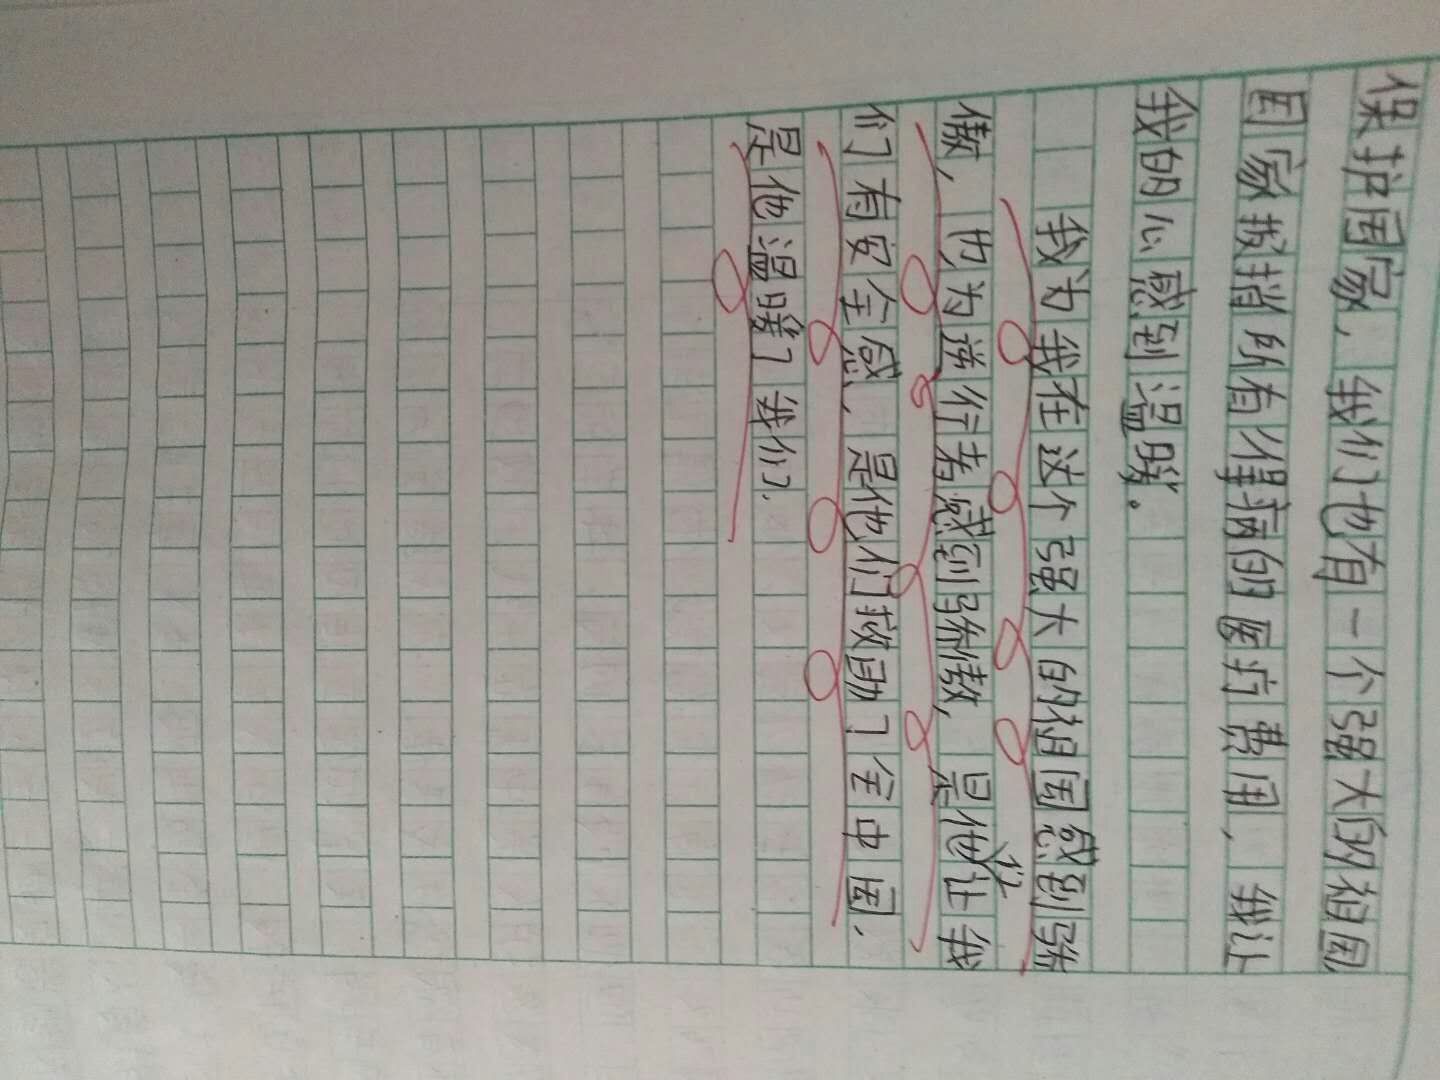 保护国家，我们也有一个强大的祖国，
国家报捎所有得病的医疗费用，我让
我的心感到温暖。
我为我在这个强大的祖国感到骄
傲，也为逆行者感到骄傲，是他们让我
们有安全感，是他们救助了全中国，
是他温暖了我们.